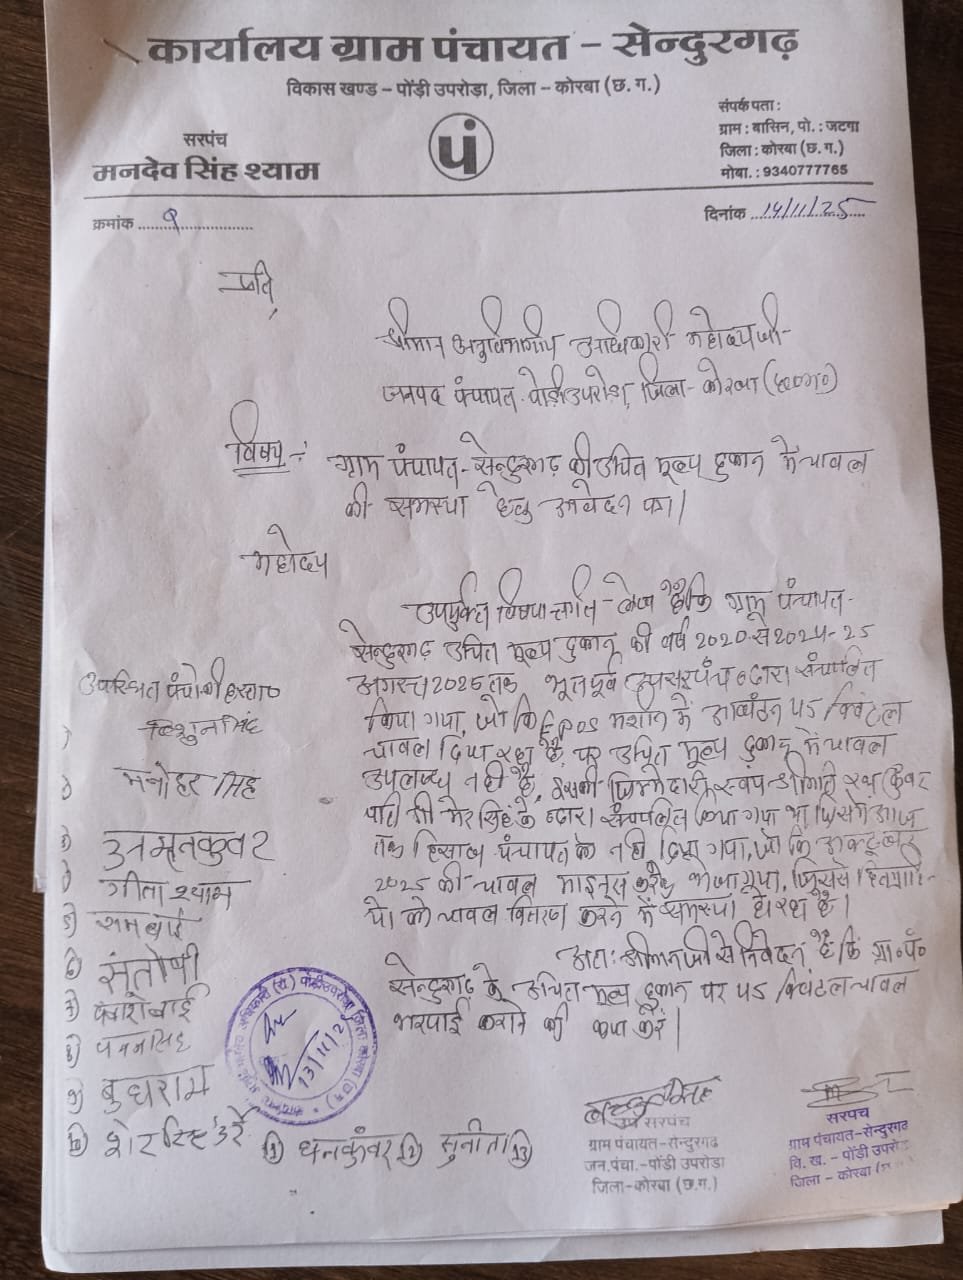 कार्यालय ग्राम पंचायत – सेन्दुरगढ़
विकास खण्ड – पोंड़ी उपरोड़ा, जिला – कोरबा (छ. ग.)
सरपंच
मनदेव सिंह श्याम
पं
संपर्क पता :
ग्राम : बासिन, पो. : जटगा
जिला : कोरबा (छ.ग.)
मोबा. : 9340777765
क्रमांक ९
दिनांक 14/11/25
प्रति,
श्रीमान अनुविभागीय अधिकारी महोदय जी
जनपद पंचायत पोड़ीउपरोड़ा, जिला-कोरबा (छ०ग०)
विषय :- ग्राम पंचायत-सेन्दुरगढ़ की उचित मूल्य दुकान में चावल
की समस्या हेतु आवेदन पत्र।
महोदय
उपर्युक्त विषयान्तर्गत लेख है कि ग्राम पंचायत-
सेन्दुरगढ़ उचित मूल्य दुकान की वर्ष 2020 से 2024-25
अगस्त 2025 तक भूतपूर्व उपसरपंच द्वारा संचालित
किया गया, जो कि EPOS मशीन में क्विंटल
चावल दिया रहा है, पर उचित मूल्य दुकान में चावल
उपलब्ध नही है, इसकी
द्वारा संचालित किया गया था जिसमें आज
तक हिसाब पंचायत को नही दिया गया, जो कि अक्टूबर
2025 की चावल माइनस करके भेजा गया, जिससे हितग्राहि-
यो को चावल वितरण करने में समस्या हो रहा है।
अतः श्रीमान जी से निवेदन है कि ग्रा०पं०
सेन्दुरगढ़ के उचित मूल्य दुकान पर क्विंटल चावल
भरपाई कराने की कृपा करें।
उपस्थित पंचो की हस्ता०
मनोहर सिंह
गीता श्याम
5) रामबाई
6) संतोषी
8) पवनसिंह
9) बुधराम
10) शेरसिंह उर्रे
11) धनकुंवर 12) सुनीता 13)
13/11/2
उप सरपंच
ग्राम पंचायत-सेन्दुरगढ़
जन.पंचा.-पोंड़ी उपरोड़ा
जिला-कोरबा (छ.ग.)
सरपंच
ग्राम पंचायत-सेन्दुरगढ़
वि. ख. - पोंड़ी उपरो
जिला - कोरबा